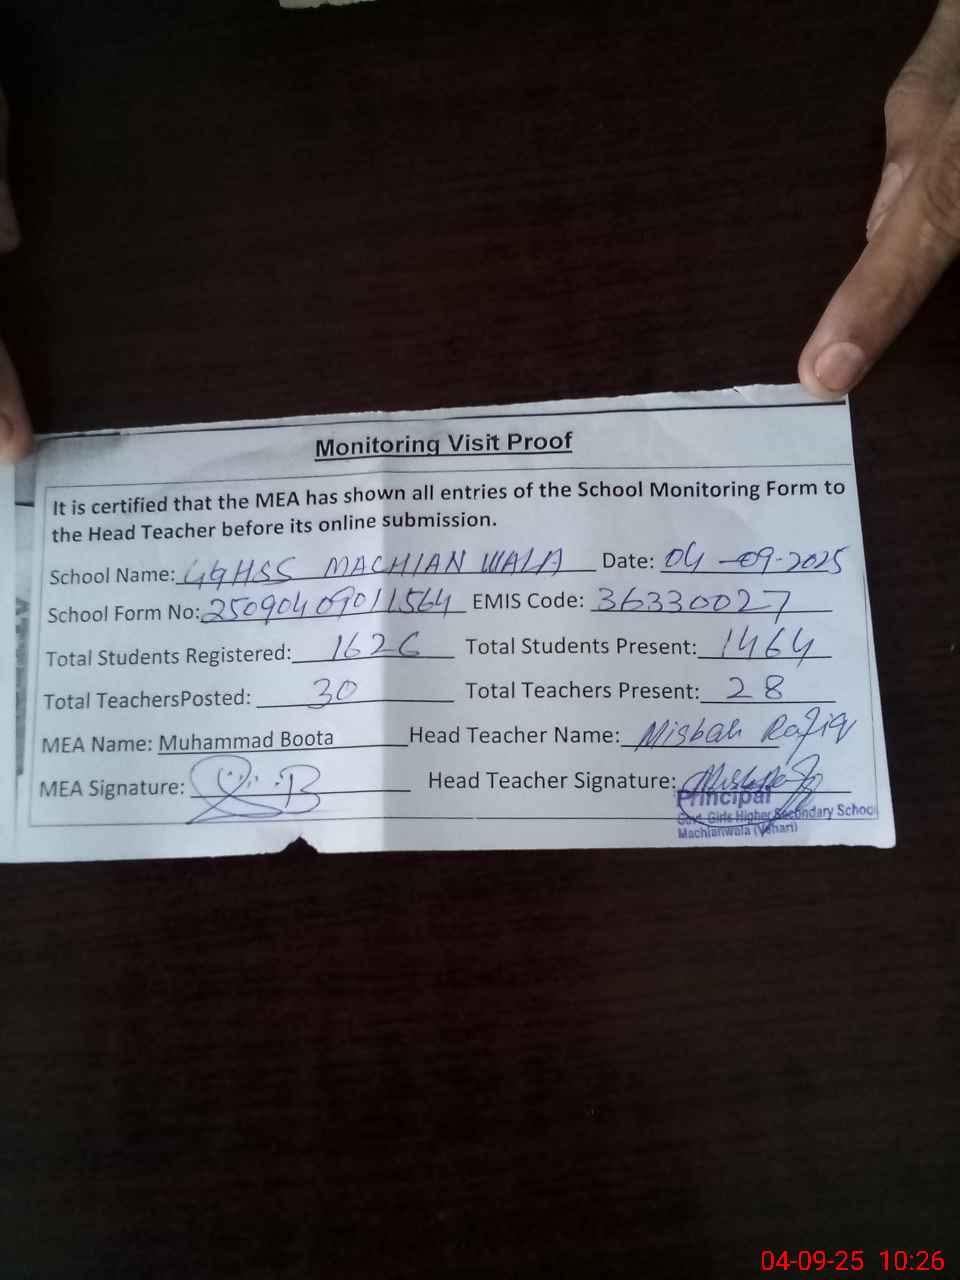 Monitoring Visit Proof
It is certified that the MEA has shown all entries of the School Monitoring Form to
the Head Teacher before its online submission.
School Name: GGHSS MACHIAN WALA Date: 04-09-2025
School Form No: 25090409011564 EMIS Code: 36330027
Total Students Registered: 1626 Total Students Present: 1464
Total TeachersPosted: 30 Total Teachers Present: 28
MEA Name: Muhammad Boota Head Teacher Name: Misbah Rafiq
MEA Signature: Head Teacher Signature:
Principal
Govt. Girls Higher Secondary School
Machianwala (Vehari)
04-09-25 10:26